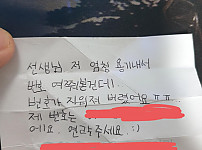 선생님 저 엄청 용기내서
번호 여쭤본건데
번호가 지워져 버렸어요 ㅠㅠ..
제 번호는
에요. 연락주세요 :)